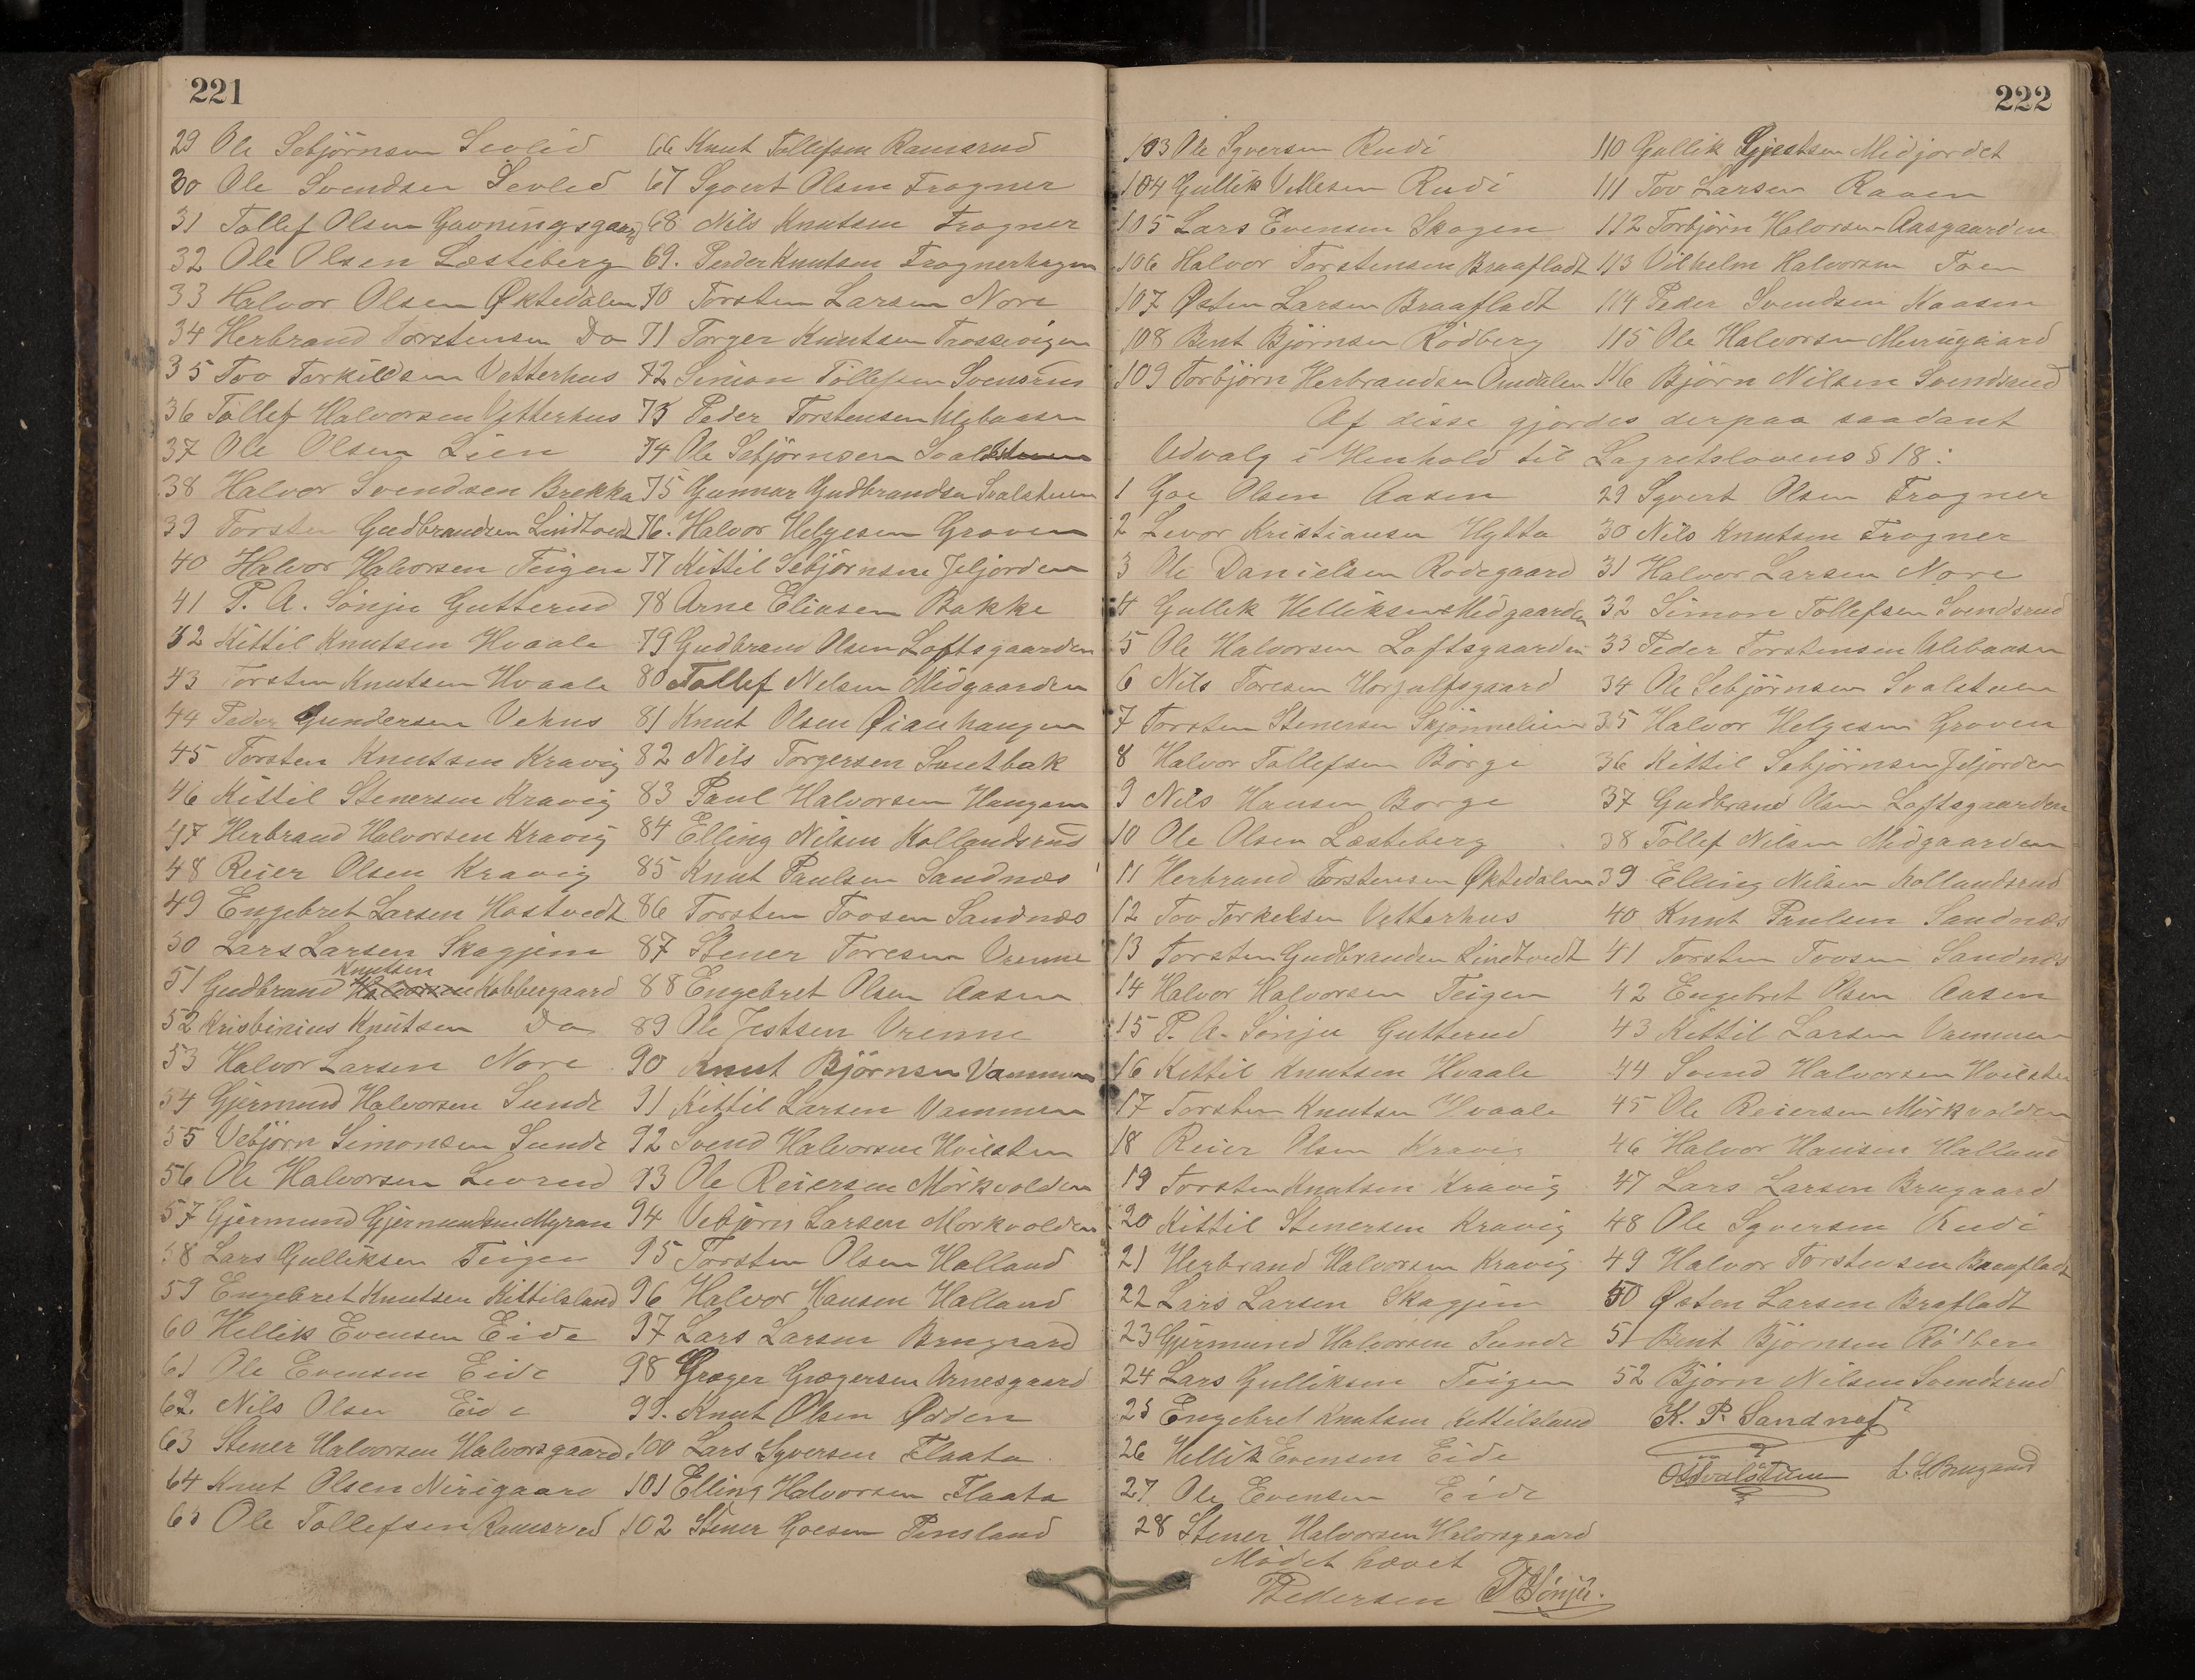 221
29 Ole Sebjörnsen Sevlid
30 Ole Svendsen Sevled
31 Tollef Olsen Gavningsgaard
32 Ole Olsen Læsteberg
33 Halvor Olsen Øktedalen
34 Herbrand Torstensen Do
35 Tov Torkildsen Vetterhus
36 Tollef Halvorsen Vetterhus
37 Ole Olsen Lien
38 Halvor Svendsen Brekka
39 Torsten Gudbrandsen Lindtvedt
40 Halvor Halvorsen Teigen
41 P. A. Sönju Gutterud
42 Kittil Knutsen Hvaale
43 Torsten Knutsen Hvaale
44 Peder Gundersen Vehus
45 Torsten Knutsen Kravig
46 Kittil Stenersen Kravig
47 Herbrand Halvorsen Kravig
48 Reier Olsen Kravig
49 Engebret Larsen Hostvedt
50 Lars Larsen Skagjem
51 Gudbrand Halvorsen Knutsen Kobbergaard
52 Kristinius Knutsen Do
53 Halvor Larsen Nore
54 Gjermund Halvorsen Sunde
55 Vebjörn Simonsen Sunde
56 Ole Halvorsen Levrud
57 Gjermund Gjermundsen Myran
58 Lars Gulliksen Teigen
59 Engebret Knutsen Kittilsland
60 Hellik Evensen Eide
61 Ole Evensen Eide
62. Nils Olsen Eide
63 Stener Halvorsen Halvorsgaard
64 Knut Olsen Nirigaard
65 Ole Tollefsen Ramsrud
66 Knut Tollefsen Ramsrud
67 Syvert Olsen Frogner
68 Nils Knutsen Frogner
69. Peder Knutsen Frognerhagen
70 Torsten Larsen Nore
71 Torger Knutsen Trossevigen
72 Simon Tollefsen Svensrud
73 Peder Torstensen Ulebaasen
74 Ole Sebjörnsen Svalsteen
75 Gunnar Gudbrandsen Svalsteen
76. Halvor Helgesen Groven
77 Kittil Sebjörnsen Jeljorden
78 Arne Eliasen Bakke
79 Gudbrand Olsen Loftsgaarden
80 Tollef Nelsen Midgaarden
81 Knut Olsen Øianhaugen
82 Nils Torgersen Smetbak
83 Paul Halvorsen Haugen
84 Elling Nilsen Kollandsrud
85 Knut Paulsen Sandnæs
86 Torsten Tovsen Sandnæs
87 Stener Toresen Vrenne
88 Engebret Olsen Aasen
89 Ole Jestsen Vrenne
90 Knut Björnsen Vammen
91 Kittil Larsen Vammen
92 Svend Halvorsen Hvilsten
93 Ole Reiersen Mörkvolden
94 Vebjörn Larsen Morkvolden
95 Torsten Olsen Halland
96 Halvor Hansen Halland
97 Lars Larsen Brugaard
98 Græger Grægersen Arnesgaard
99. Knut Olsen Ødden
100 Lars Syversen Flaata
101 Elling Halvorsen Flaata
102 Stener Goesen Pensland
222
103 Ole Syversen Rudi
104 Gullik Vetlesen Rudi
105 Lars Evensen Skogen
106 Halvor Torstensen Braafladt
107 Østen Larsen Braafladt
108 Bent Björnsen Rödberg
109 Torbjörn Herbrandsen Omdalen
110 Gullik Gjestsen Midjordet
111 Tov Larsen Raaen
112 Torbjörn Halvorsen Aasgaarden
113 Vilhelm Halvorsen Toen
114 Peder Svendsen Kaasen
115 Ole Halvorsen Murugaard
116 Björn Nilsen Svendsrud
Af disse gjordes derpaa saadant
Udvalg i Henhold til Lagretslovens § 18:
1 Goe Olsen Aasen
2 Levor Kristiansen Hytta
3 Ole Danielsen Rodegaard
4 Gullik Helliksen Midgaarden
5 Ole Halvorsen Loftsgaarden
6 Nils Toresen Horjulfsgaard
7 Torsten Stenersen Skjönnelien
8 Halvor Tollefsen Börge
9 Nils Hansen Borge
10 Ole Olsen Læsteberg
11 Herbrand Torstensen Øktedalen
12 Tov Torkelsen Vetterhus
13 Torsten Gudbrandsen Lindtvedt
14 Halvor Halvorsen Teigen
15 P. A. Sönju Gutterud
16 Kittil Knutsen Hvaale
17 Torsten Knutsen Hvaale
18 Reier Olsen Kravig
19 Torsten Knutsen Kravig
20 Kittil Stenersen Kravig
21 Herbrand Halvorsen Kravig
22 Lars Larsen Skagjem
23 Gjermund Halvorsen Sunde
24 Lars Gulliksen Teigen
25 Engebret Knutsen Kittilsland
26 Hellik Evensen Eide
27 Ole Evensen Eide
28 Stener Halvorsen Halvorsgaard
29 Syvert Olsen Frogner
30 Nils Knutsen Frogner
31 Halvor Larsen Nore
32 Simon Tollefsen Svendsrud
33 Peder Torstensen Ulebaasen
34 Ole Sebjörnsen Svalsteen
35 Halvor Helgesen Groven
36 Kittil Sebjörnsen Jeljorden
37 Gudbrand Olsen Loftsgaarden
38 Tollef Nilsen Midgaarden
39 Elling Nilsen Kollandsrud
40 Knut Paulsen Sandnæs
41 Torsten Tovsen Sandnæs
42 Engebret Olsen Aasen
43 Kittil Larsen Vammen
44 Svend Halvorsen Hvilsten
45 Ole Reiersen Mörkvolden
46 Halvor Hansen Halland
47 Lars Larsen Brugaard
48 Ole Syversen Rudi
49 Halvor Torstensen Braafladt
50 Østen Larsen Brafladt
51 Bent Björnsen Rödberg
52 Björn Nilsen Svendsrud
K. P. Sandnæs
OSSvalsteen L. L. Brugaard
Mödet hævet
Pedersen PASönju.